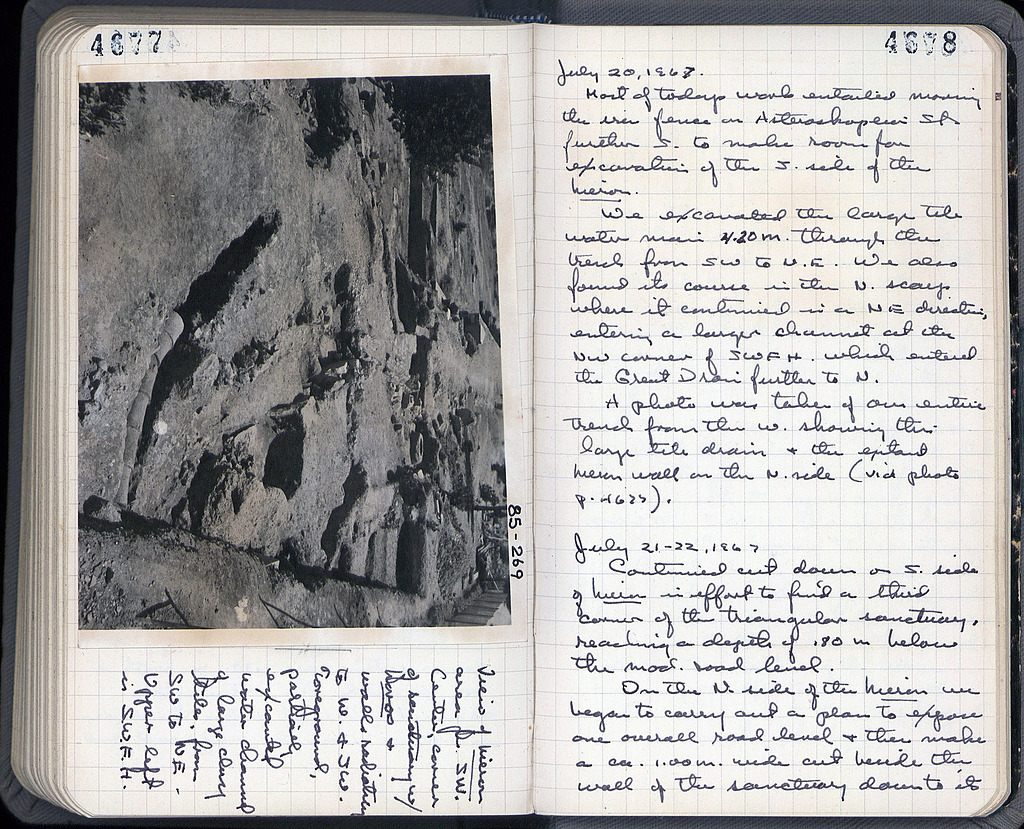 4677
85-269
View of hieron
area fr. SW.
Center, corner
of sanctuary w/
horos +
walls radiating
to N. + SW.
Foreground,
partially
excavated
water channel
of large clay
tiles, from
SW to NE -
Upper left
is S.W.F.H.
4678
July 20, 1967.
Most of todays work entailed moving
the wire fence on Asteroskopeiou St.
further S. to make room for
excavation of the S. side of the
hieron.
We excavated the large tile
water main 4.20 m. through the
trench from SW to N.E. We also
found its course in the N. scarp
where it continued in a NE direction,
entering a larger channel at the
NW corner of SWFH. which entered
the Great Drain further to N.
A photo was taken of our entire
trench from the W. showing this
large tile drain + the extant
hieron wall on the N. side (vid photo
p. 4677).
July 21-22, 1967
Continued cut down on S. side
of hieron in effort to find a third
corner of the triangular sanctuary,
reaching a depth of .80 m below
the mod. road level.
On the N. side of the hieron we
began to carry out a plan to expose
one overall road level + then make
a ca. 1.00 m. wide cut beside the
wall of the sanctuary down to its